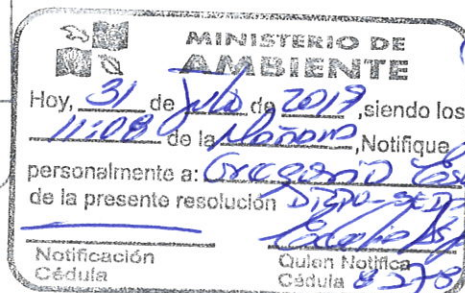 MINISTERIO DE
AMBIENTE
Hoy, 31 de Julio de 2019, siendo los
11:08 de la Mañana, Notifique
personalmente a: Gregorio
de la presente resolución
Notificación
Cédula
Quien Notifica
Cédula 8-278